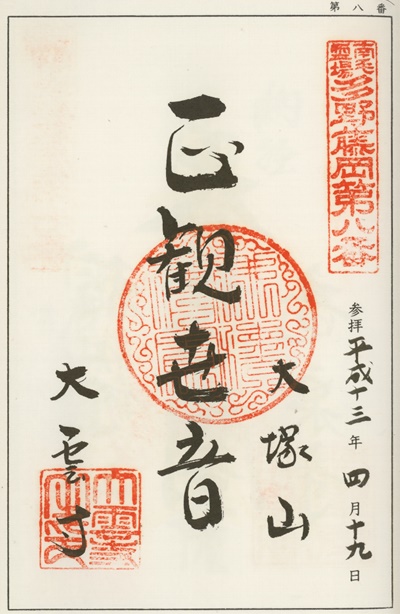 第八番
南毛霊場
多野藤岡第八番
参拝 平成十三年四月十九日
大塚山
正観世音
大雲寺